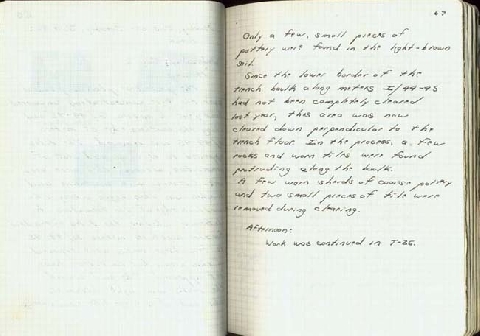 47
Only a few, small pieces of
pottery were found in the light-brown
soil.
Since the lower border of the
trench baulk along meters I/44-45
had not been completely cleared
last year, this area was now
cleared down perpendicular to the
trench floor. In the process, a few
rocks and worn tiles were found
protruding along the baulk.
A few worn sherds of coarse pottery
and two small pieces of tile were
removed during cleaning.
Afternoon:
Work was continued in J-35.